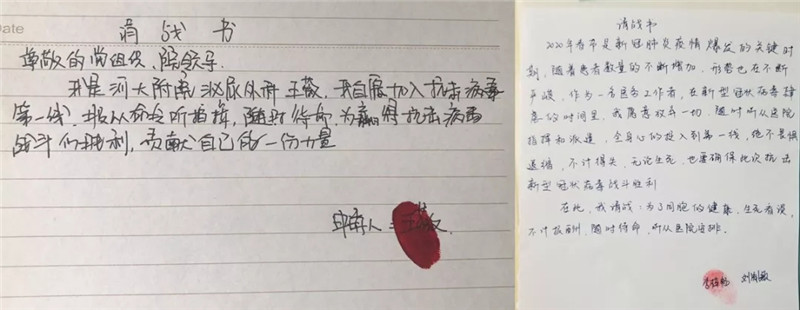 Date
请战书
尊敬的党组织、院领导:
我是河大附属泌尿外科王敬,我自愿加入抗击病毒
第一线,服从命令听指挥,随时待命,为赢得抗击病毒
战斗的胜利,贡献自己的一份力量
申请人:王敬
请战书
2020年春节是新冠肺炎疫情爆发的关键时
期,随着患者数量的不断增加,形势也在不断
严峻,作为一名医务工作者,在新型冠状病毒肆
虐的时间里,我愿意放弃一切,随时听从医院
指挥和派遣,全身心的投入到第一线,绝不畏惧
退缩,不计得失,无论生死,也要确保此次抗击
新型冠状病毒战斗胜利
在此,我请战:为了同胞的健康,生死看淡,
不计报酬,随时待命,听从医院安排。